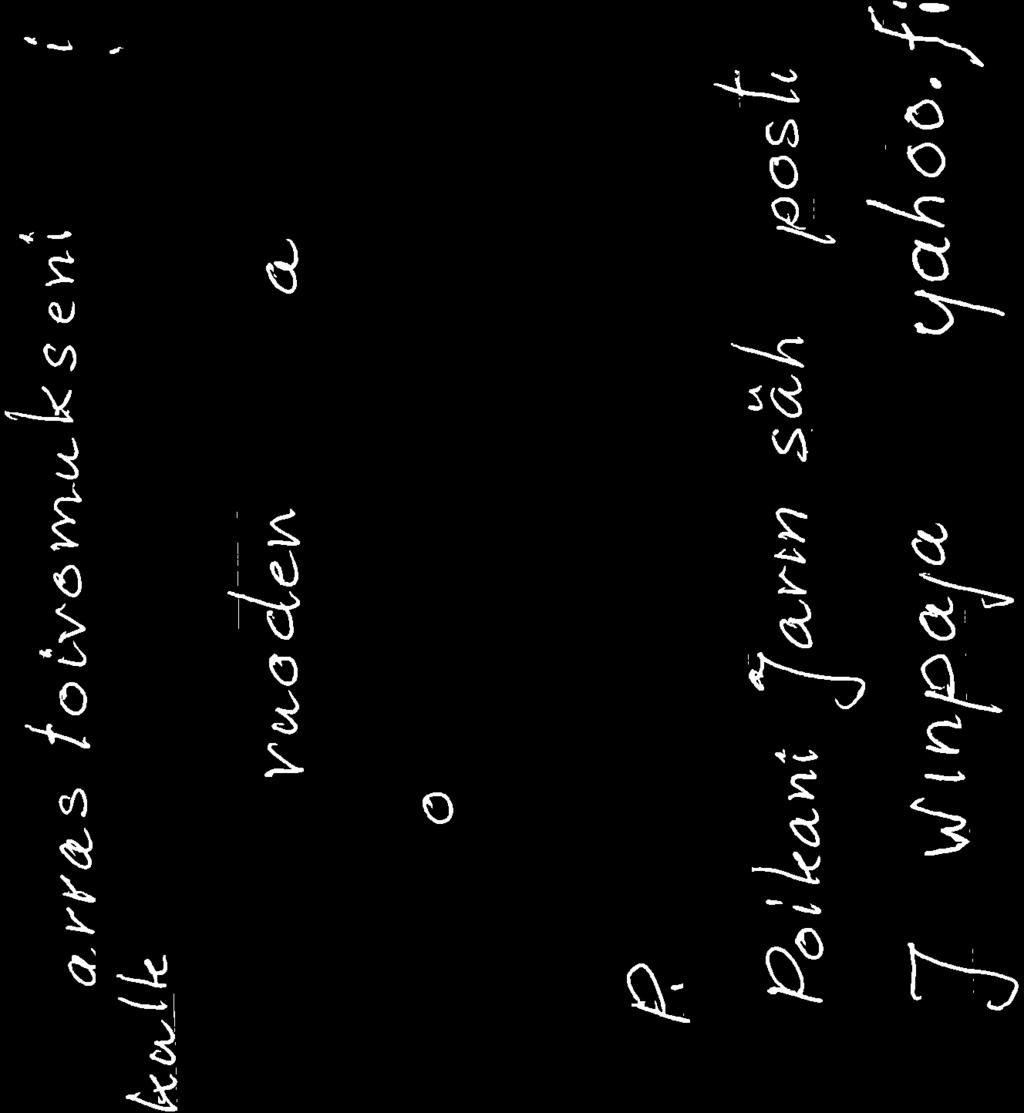 arvas toivomukseni i
vuoden a
o
P.
Poikani Jarin säh posti
J winpaja yahoo.fi